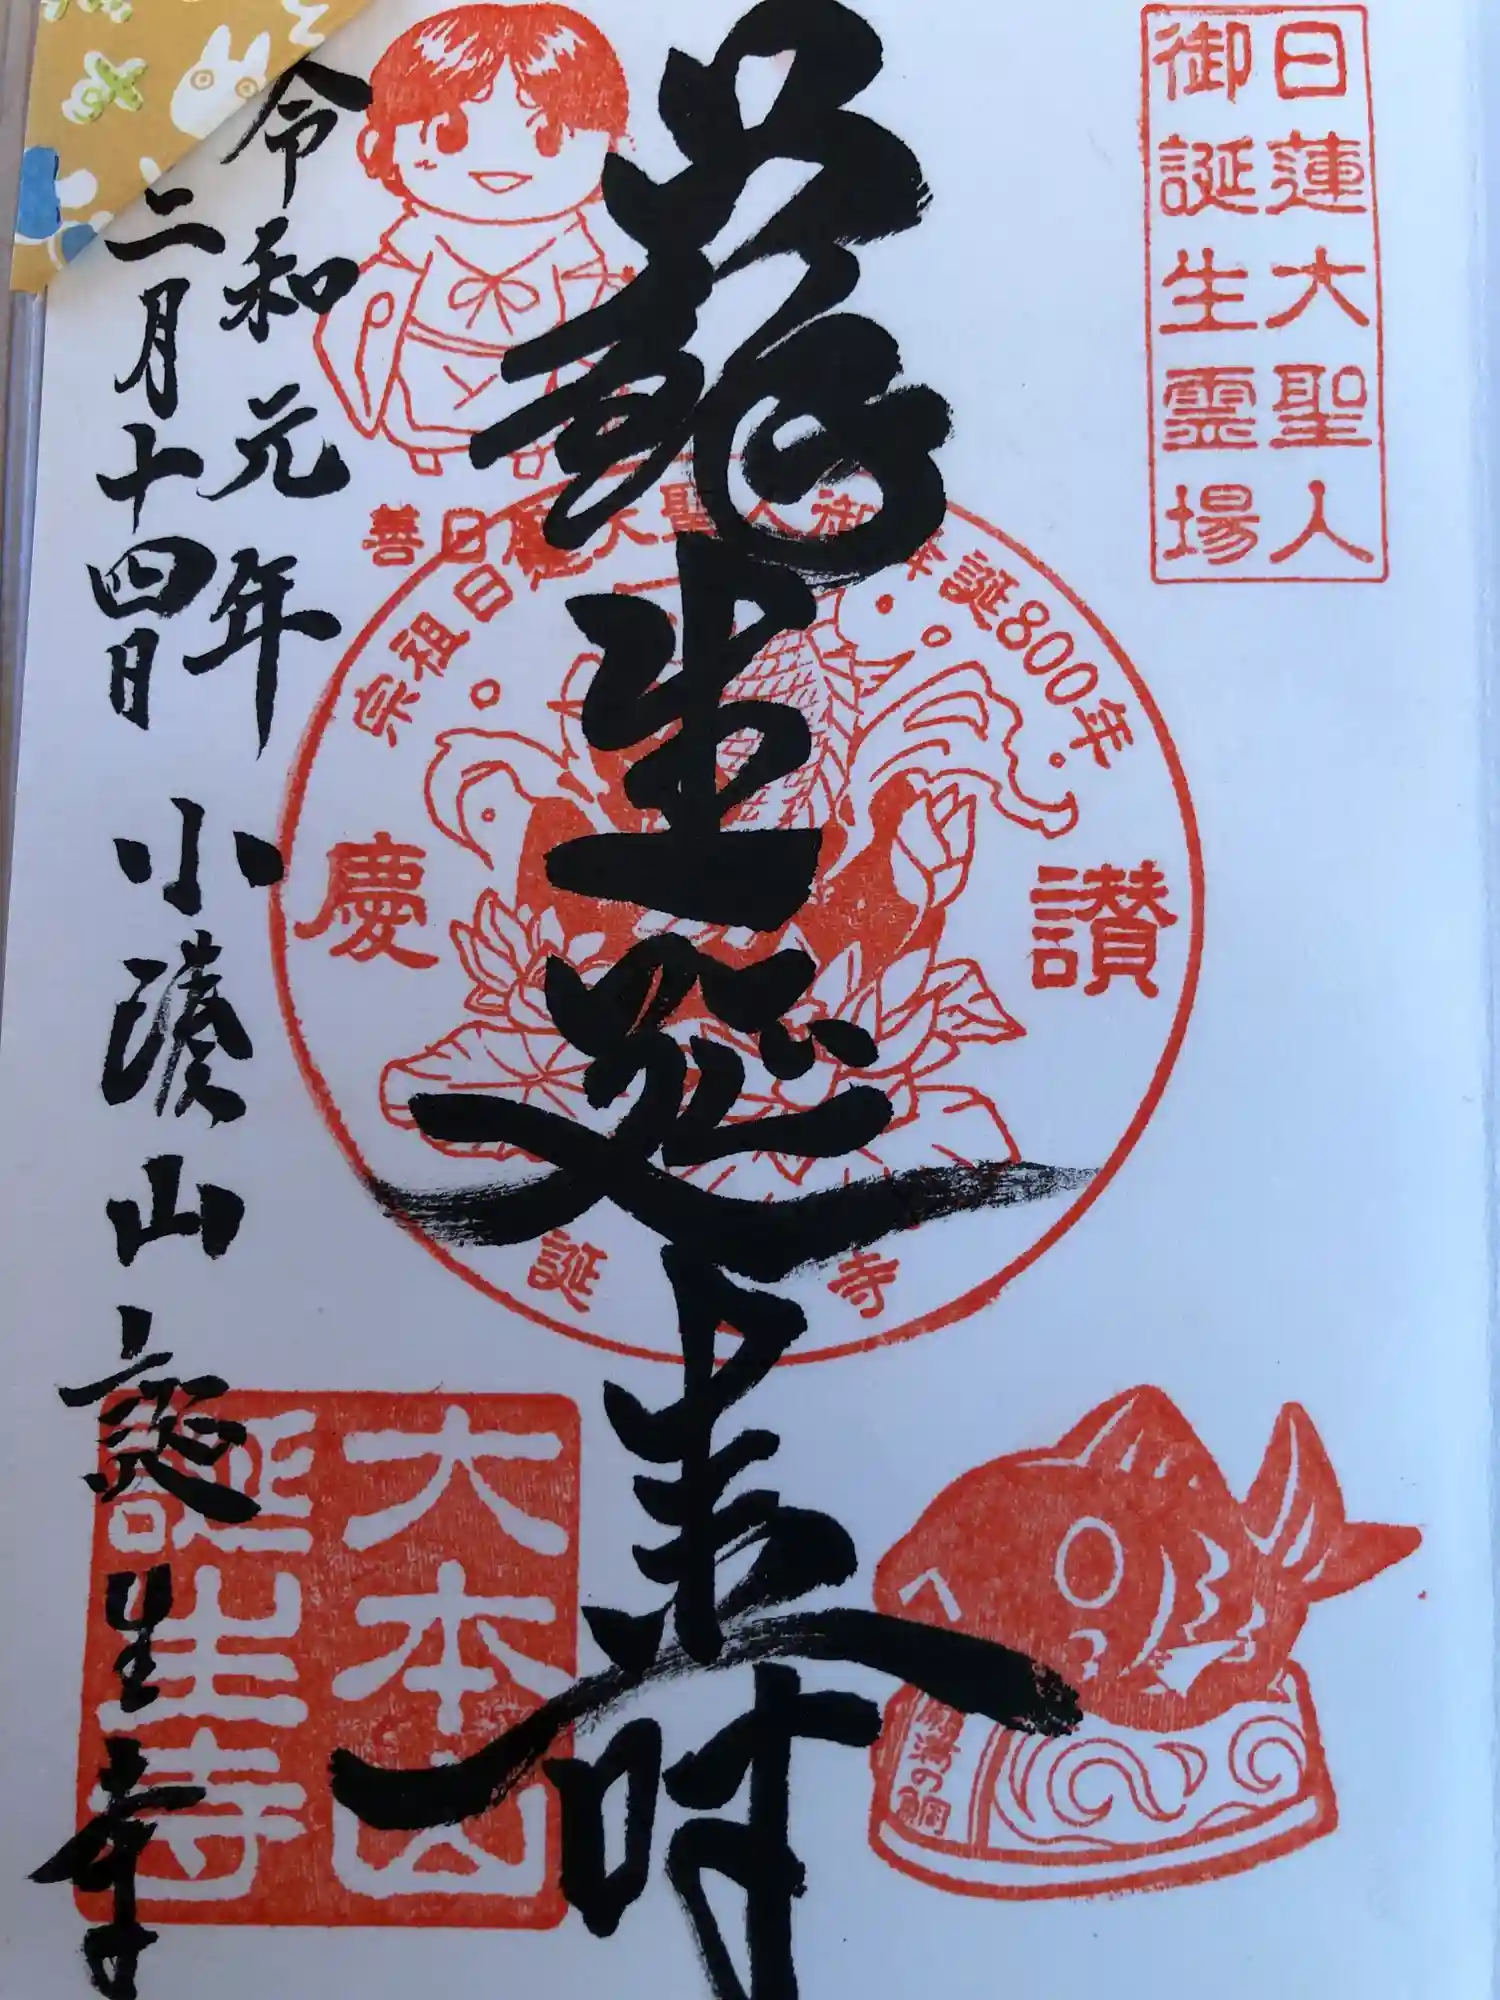 日蓮大聖人
御誕生霊場
善日
宗祖日蓮大聖人御降誕800年
慶讃
誕 寺
生延
願満の鯛
大本山
誕生寺
令和元年
二月十四日
小湊山誕生寺